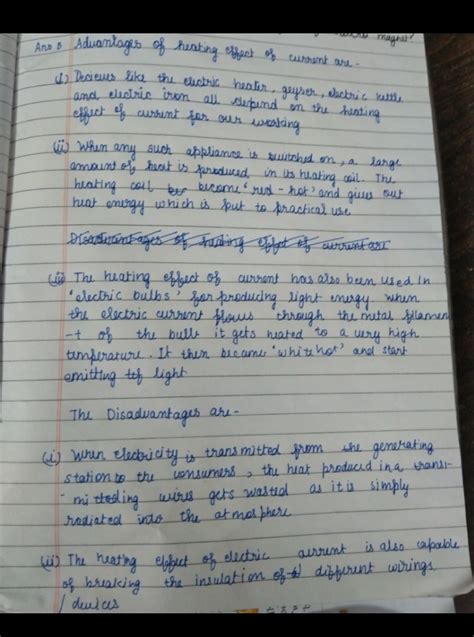 magnet?
Ans 5 Advantages of heating effect of current are -
(i) Devices like the electric heater, geyser, electric kettle
and electric iron all depend on the heating
effect of current for our working
(ii) When any such appliance is switched on, a large
amount of heat is produced in its heating coil. The
heating coil become 'red-hot' and gives out
heat energy which is put to practical use
Disadvantages of heating effect of current are
(iii) The heating effect of current has also been used in
'electric bulbs' for producing light energy. When
the electric current flows through the metal filamen
-t of the bulb it gets heated to a very high
temperature. It then became 'white hot' and start
emitting light
The Disadvantages are -
(i) When electricity is transmitted from the generating
station to the consumers, the heat produced in a transi-
- mitteding wires gets wasted as it is simply
radiated into the atmosphere
(ii) The heating effect of electric current is also capable
of breaking the insulation of different wirings
/ devices